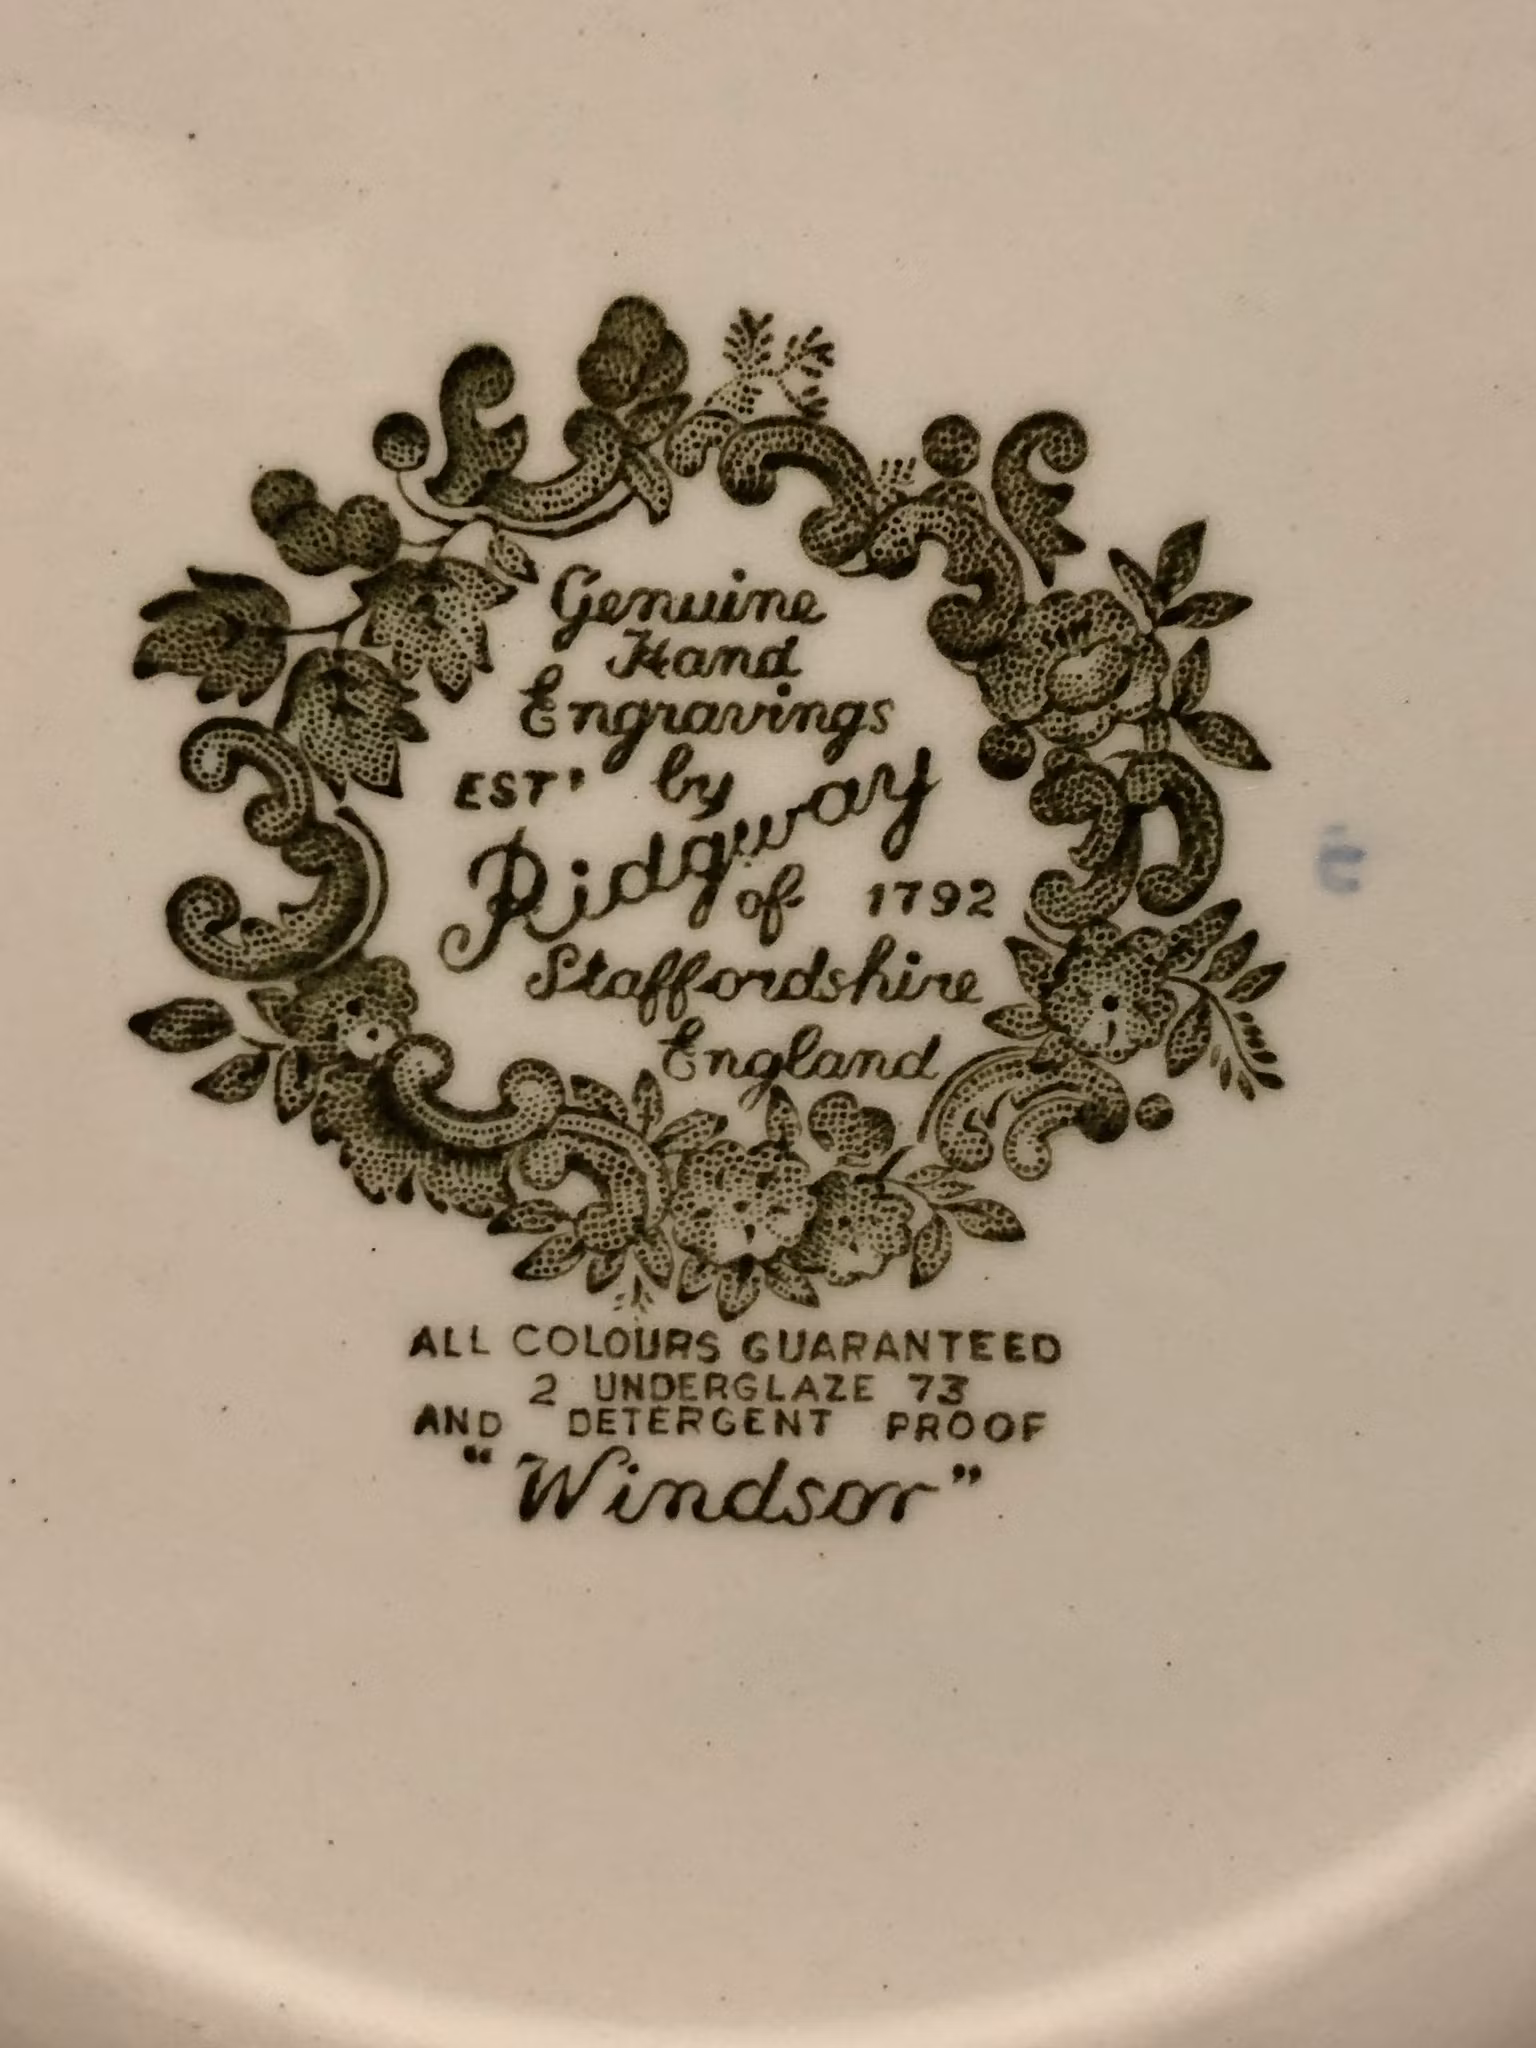 Genuine
Hand
Engravings
EST' by
Ridgway
of 1792
Staffordshire
England
ALL COLOURS GUARANTEED
2 UNDERGLAZE 73
AND DETERGENT PROOF
"Windsor"